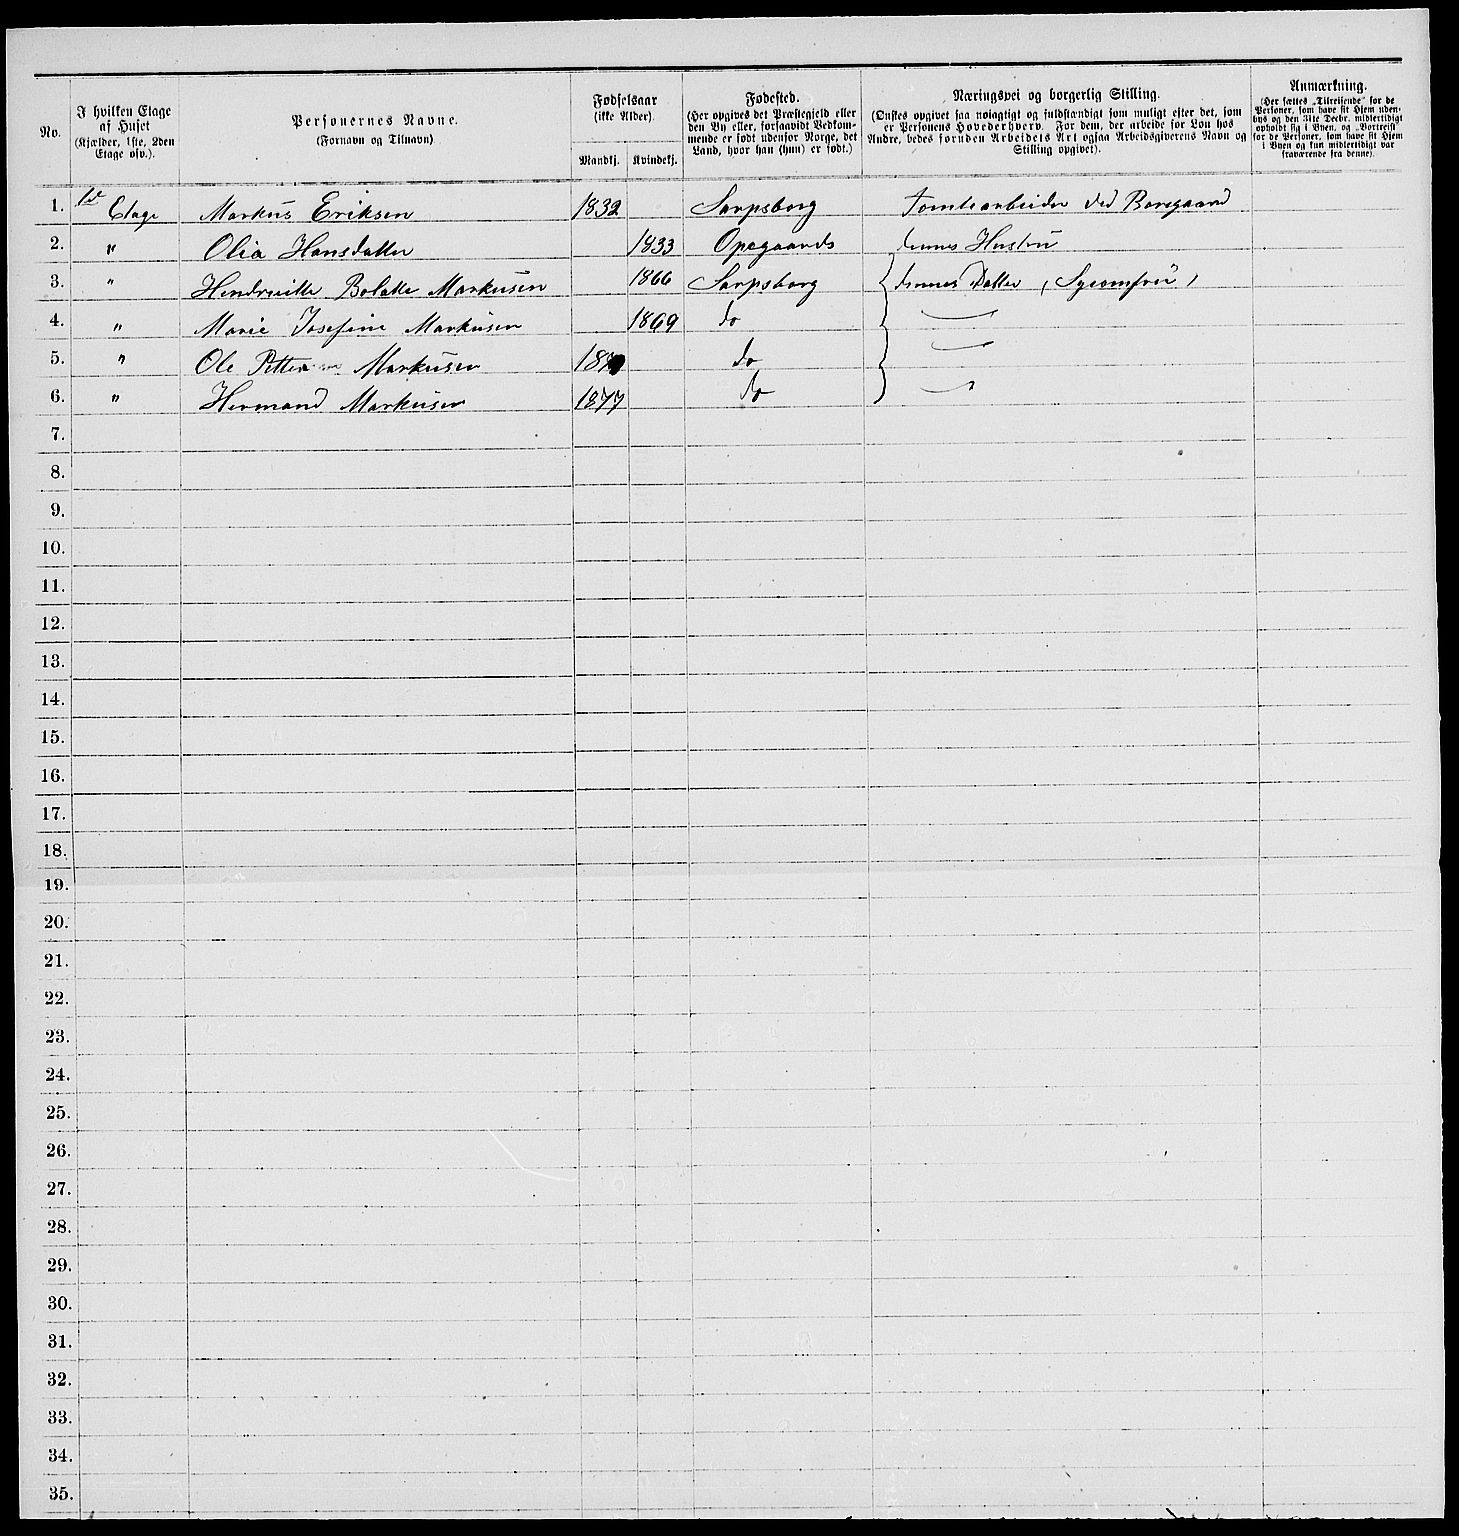 No.
I hvilken Etage
af Huset
(Kjælder, 1ste, 2den
Etage osv.).
Personernes Navne.
(Fornavn og Tilnavn)
Fødselsaar
(ikke Alder).
Mandkj. Kvindekj.
Fødested.
(Her opgives det Præstegjeld eller
den By eller, forsaavidt Vedkom-
mende er født udenfor Norge, det
Land, hvor han (hun) er født.)
Næringsvei og borgerlig Stilling.
(Ønskes opgivet saa nøiagtigt og fuldstændigt som muligt efter det, som
er Personens Hovederhverv. For dem, der arbeide for Løn hos
Andre, bedes foruden Arbeidets Art ogsaa Arbeidsgiverens Navn og
Stilling opgivet).
Anmærkning.
(Her sættes „Tilreisende“ for de
Personer, som have sit Hjem uden-
bys og den 31te Decbr. midlertidigt
opholdt sig i Byen, og „Bortreist“
for de Personer, som have sit Hjem
i Byen og kun midlertidigt var
fraværende fra denne).
1. 1ste Etage Markus Eriksen 1832 Sarpsborg Tomtearbeider ved Borregaard
2. " Olia Hansdatter 1833 Opegaards hennes Hustru
3. " Markusen 1866 Sarpsborg Datter (Syjomfru)
4. " Marie Josefine Markusen 1869 do
5. " Ole Petter Markusen do
6. " Hermand Markusen 1877 do
7.
8.
9.
10.
11.
12.
13.
14.
15.
16.
17.
18.
19.
20.
21.
22.
23.
24.
25.
26.
27.
28.
29.
30.
31.
32.
33.
34.
35.